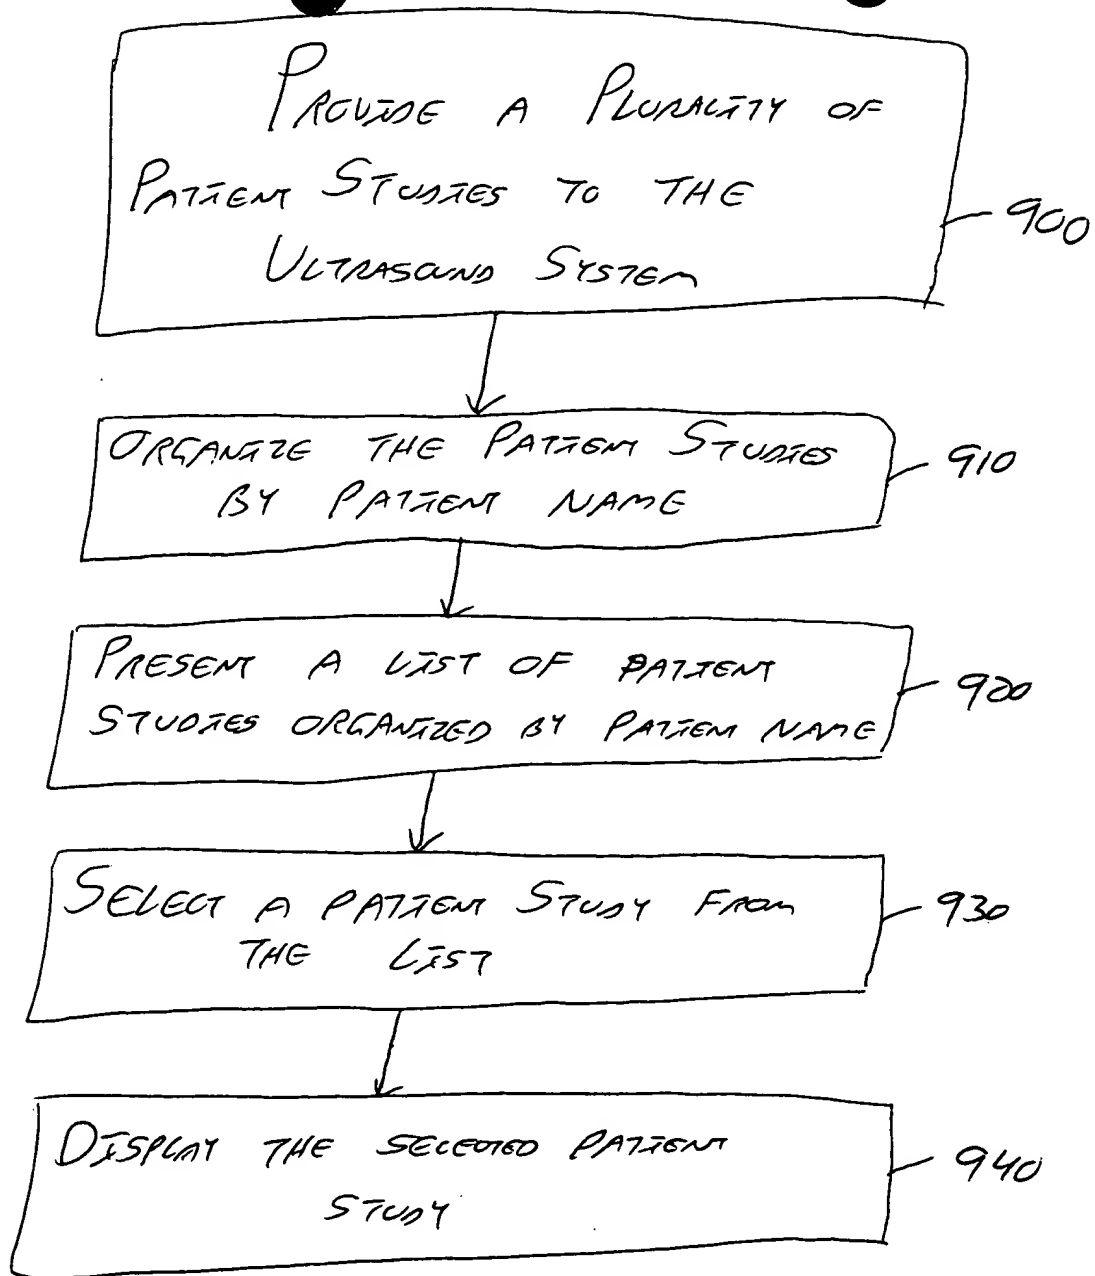 PROVIDE A PLURALITY OF
PATIENT STUDIES TO THE
ULTRASOUND SYSTEM
900
ORGANIZE THE PATIENT STUDIES
BY PATIENT NAME
910
PRESENT A LIST OF PATIENT
STUDIES ORGANIZED BY PATIENT NAME
920
SELECT A PATIENT STUDY FROM
THE LIST
930
DISPLAY THE SELECTED PATIENT
STUDY
940